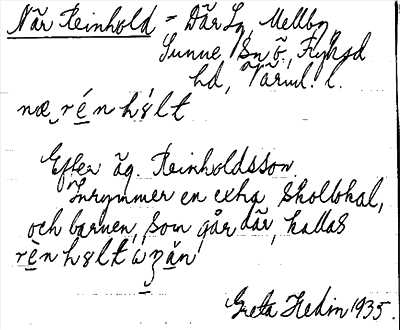 När Reinhold = Där Lg, Mellby
Sunne, Sn ö., Fryksd
hd, Värml. l.
næ_rén hɷlt
Efter äg. Reinholdsson.
Inrymmer en extra skollokal,
och barnen, som går där, kallas
rèn hɷlt
Greta Hedin 1935.